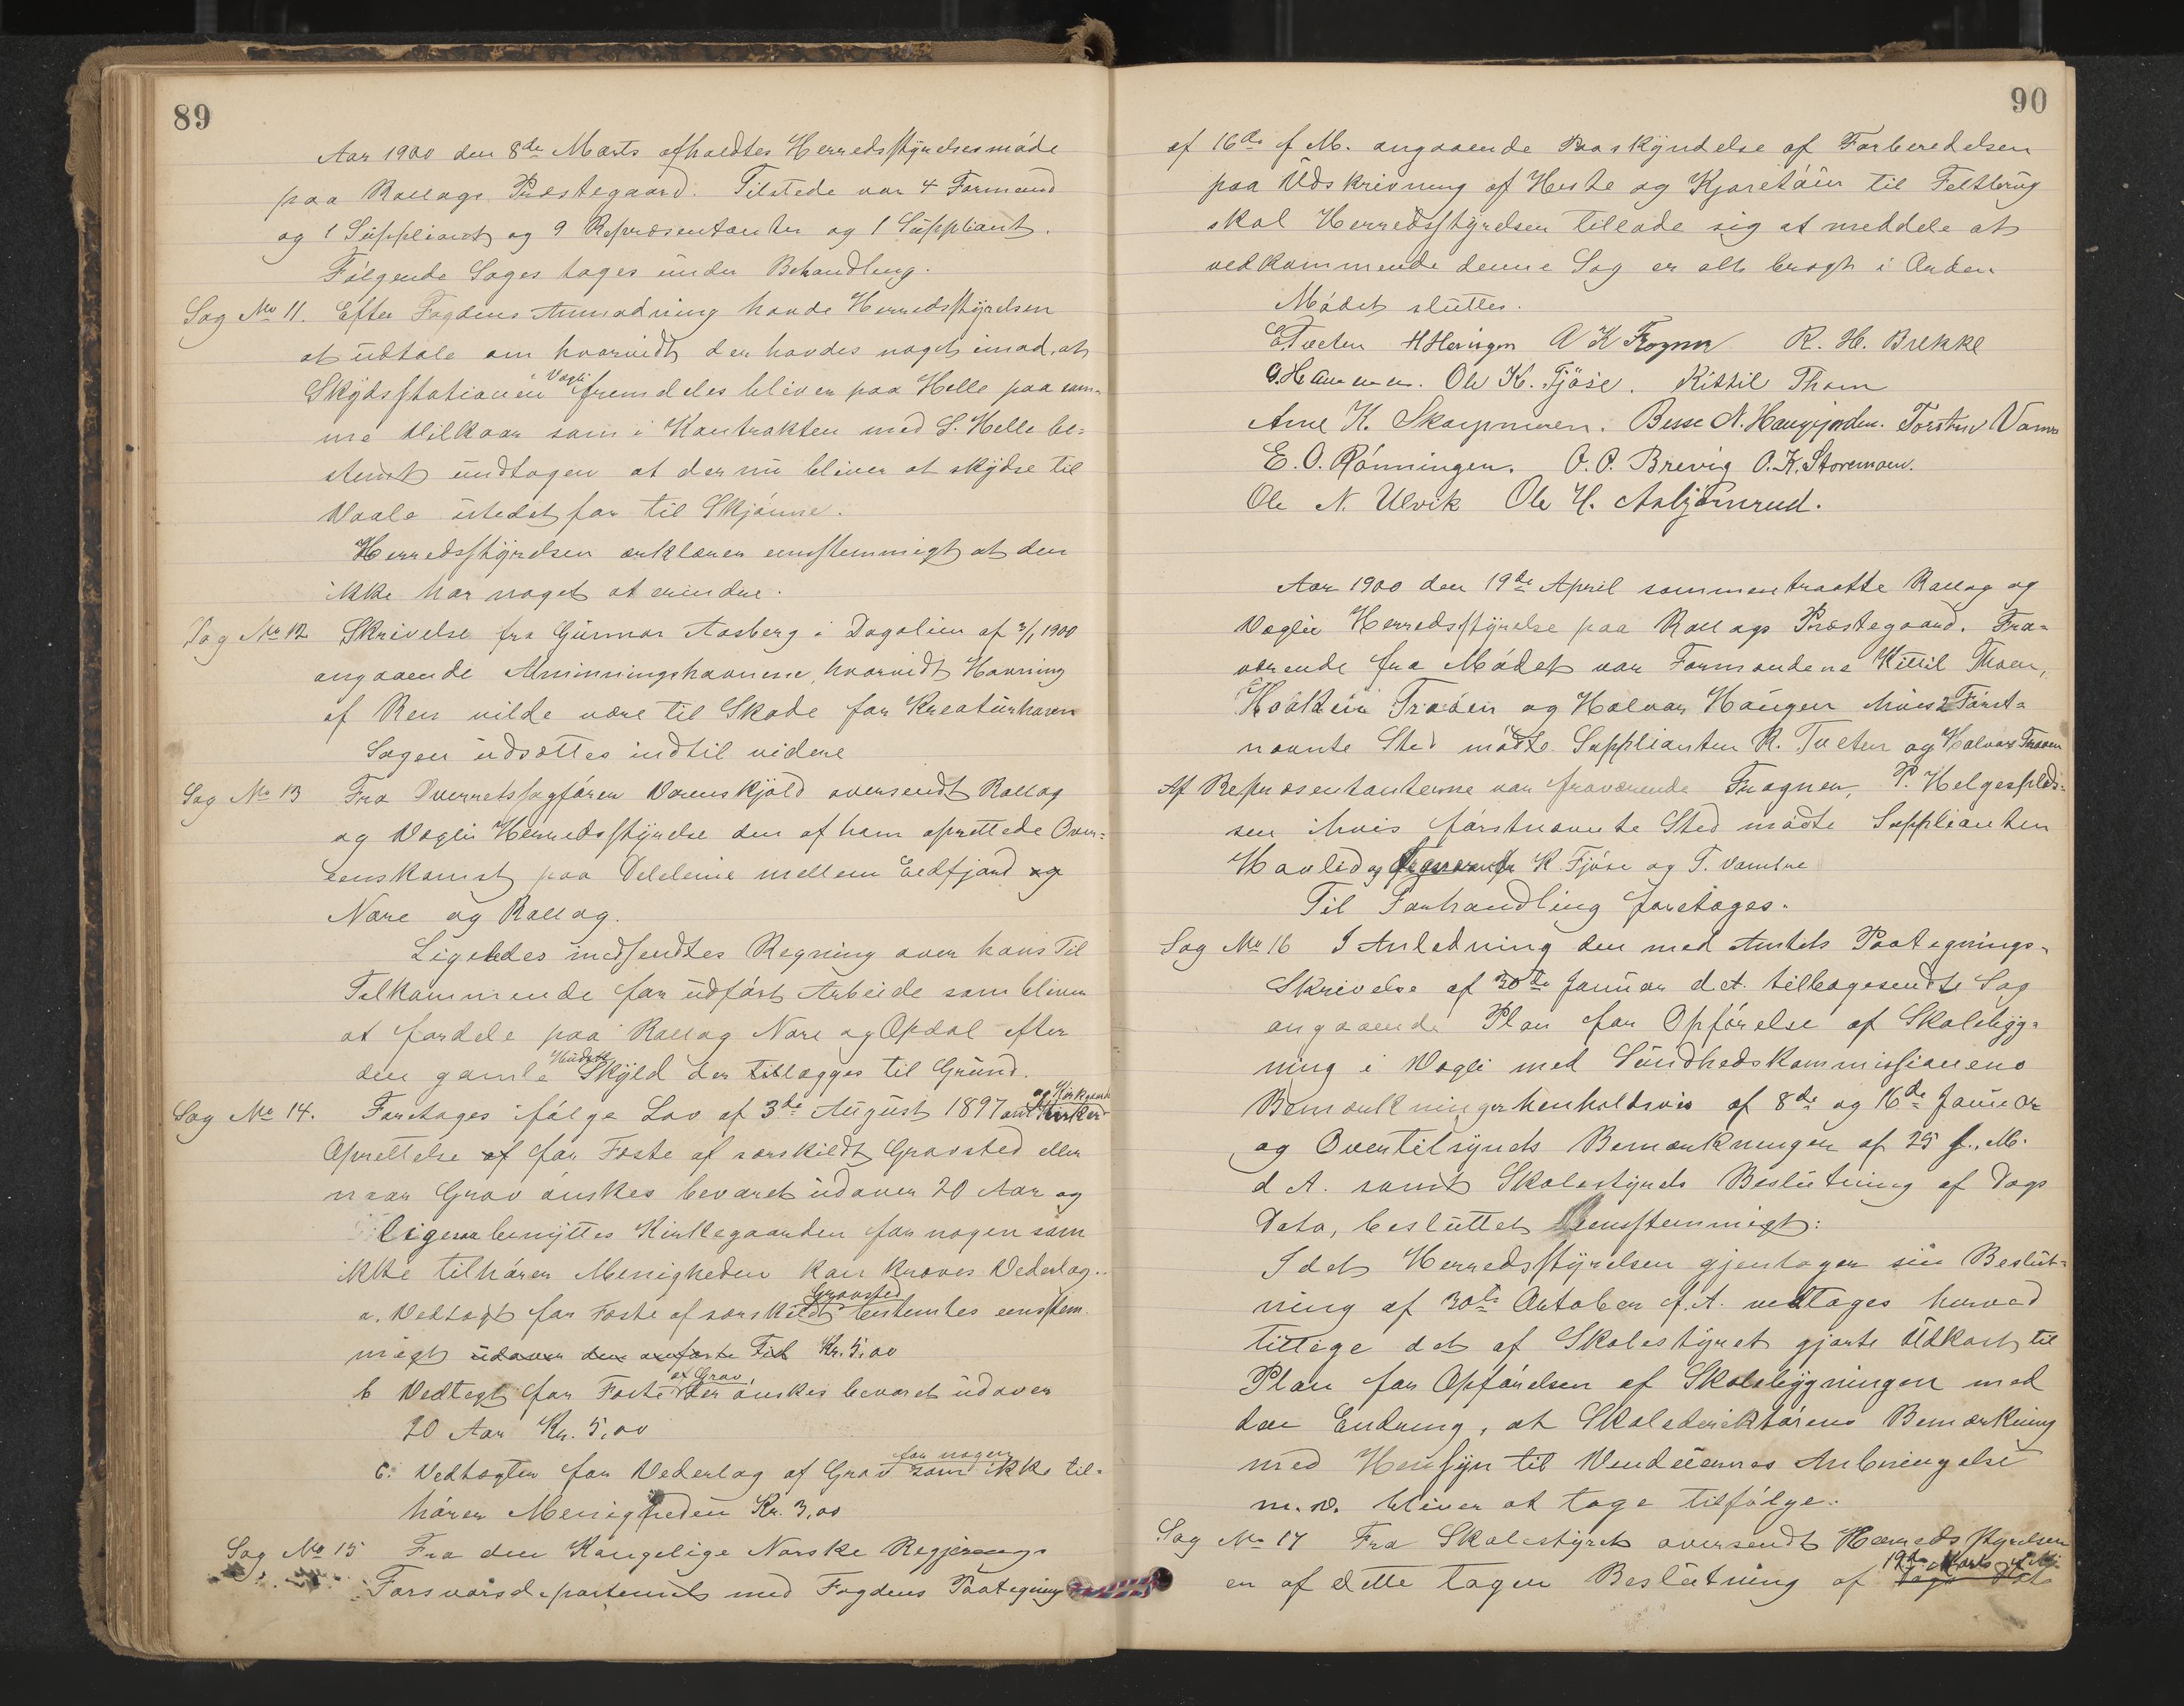 89
Aar 1900 den 8de Marts afholdtes Herredsstyrelsesmøde
paa Rollags Præstegaard. Tilstede var 4 Formænd
og 1 Suppliant og 9 Repræsentanter og 1 Suppliant.
Følgende Sager toges under Behandling.
Sag No 11. Efter Fogdens Anmodning havde Herredsstyrelsen
at udtale om hvorvidt der havdes noget imod, at
Skydsstationen i Vægli fremdeles bliver paa Helle paa sam-
me Vilkaar som i Kontrakten med S. Helle be-
stemt undtagen at der nu bliver at skydse til
Vaale istedetfor til Skjønne.
Herredsstyrelsen erklærer eenstemmigt at den
ikke har noget at erindre.
Sag No 12 Skrivelse fra Gunnar Aasberg i Dagalien af 3/1 1900
angaaende Almenningshavnene, hvorvidt Havning
af Ren vilde være til Skade for Kreaturhavn
Sagen udsættes indtil videre
Sag No 13 Fra Overretssagfører Vorenskjold oversendt Rollag
og Væglis Herredsstyrelse den af ham oprettede Over-
eenskomst paa Delelinie mellem Eidfjord og
Nore og Rollag.
Ligeledes indsendtes Regning over hans Til
Tilkommende for udført Arbeide som bliver
at fordele paa Rollag Nore og Opdal efter
den gamle Skyld der tillægges til Grund.
Sag No 14. Foretages ifølge Lov af 3de August 1897 om Kirker og Kirkegaarde
Oprettelse af for Fæste af særskildt Gravsted eller
naar Grav ønskes bevaret udover 20 Aar og
ligesaa benyttes Kirkegaarden for nogen som
ikke tilhører Menigheden kan kræves Vederlag.
a. Vedtægt for Fæste af særskildt Gravsted bestemtes eenstem-
migt udover den anførte Tid Kr. 5,00
b Vedtægt for Fæste af Grav der ønskes bevaret udover
20 Aar Kr. 5,00
c. Vedtægter for Vederlag af Grav for nogen som ikke til-
hører Menigheden Kr. 3,00
Sag No 15 Fra den Kongelige Norske Regjerings
Forsvarsdepartement med Fogdens Paategning
90
af 16de f. M. angaaende Paaskyndelse af Forberedelsen
paa Udskrivning af Heste og Kjøretøier til Feltbrug
skal Herredsstyrelsen tillade sig at meddele at
vedkommende denne Sag er alt bragt i Orden
Mødet sluttes.
E Tveten H Haugen A K Frogner R. H. Brekke
G. Hammen. Ole K. Fjøse. Kittil Thoen
Arne K. Skarpmoen. Besse N. Haugjorden. Torstein Vamr
E. O. Rønningen. O. O. Brevig O. K. Storemoen.
Ole N. Ulvik Ole H. Asbjørnrud.
Aar 1900 den 19de April sammentraatte Rollag og
Væglis Herredsstyrelse paa Rollags Præstegaard. Fra-
værende fra Mødet var Formændene Kittil Thoen,
Traaen og Halvor Haugen hvis 2 Først-
nævnte Sted mødte Supplianten R. Tveten og Halvor Traaen
Af Repræsentanterne var fraværende Frogner, P. Helgesplads-
sen ihvis førstnævnte Sted mødte Supplianten
Havled og K Fjøse og T. Vamrue
Til Forhandling foretages.
Sag No 16 I Anledning den med Amtets Paategnings-
Skrivelse af 30te Januar d.A. tilbagesendte Sag
angaaende Plan for Opførelse af Skolebyg-
ning i Vægli med Sundhedskommissionens
Bemærkninger henholdsvis af 8de og 16de Januar
og Overtilsynets Bemærkninger af 25 f. M.
d A. samt Skolestyrets Beslutning af Dags
Dato, besluttet eenstemmigt:
Idet Herredsstyrelsen gjentager sin Beslut-
ning af 30te Oktober f. A. vedtages herved
tillige det af Skolestyret gjorte Udkast til
Plan for Opførelsen af Skolebygningen med
den Endring, at Skoledirektørens Bemærkning
med Hensyn til Vinduernes Anbringelse
m. v. bliver at tage tilfølge.
Sag No 17 Fra Skolestyret oversendt Herredsstyrelsen
en af dette tagen Beslutning af 19de Marts